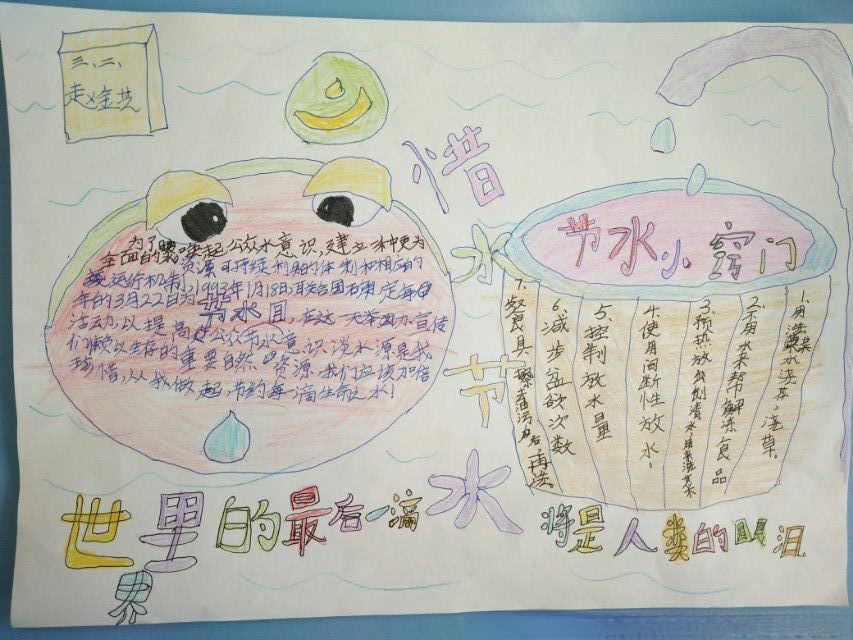 三、二、
惜水节水
为了唤起公众水意识,建立一种更为
全面的水资源可持续利用的体制和相应的
运行机制,1993年1月18日,联合国大会定每年
年的3月22日为
节水日,在这一天举办水宣传
活动,以提高公众节水意识,淡水源是我
们赖以生存的重要自然资源,我们应该加倍
珍惜,从我做起,节约每一滴生命之水!
节水小窍门
1.用洗菜水浇菜、浇草。
2.不用水来帮解冻食品
3.预热放出到清水用来洗
4.使用间断性放水。
5.控制放水量
6.减少盆欲次数
7.餐具擦油污后再洗
世里的最后一滴水
界
将是人类的眼泪.